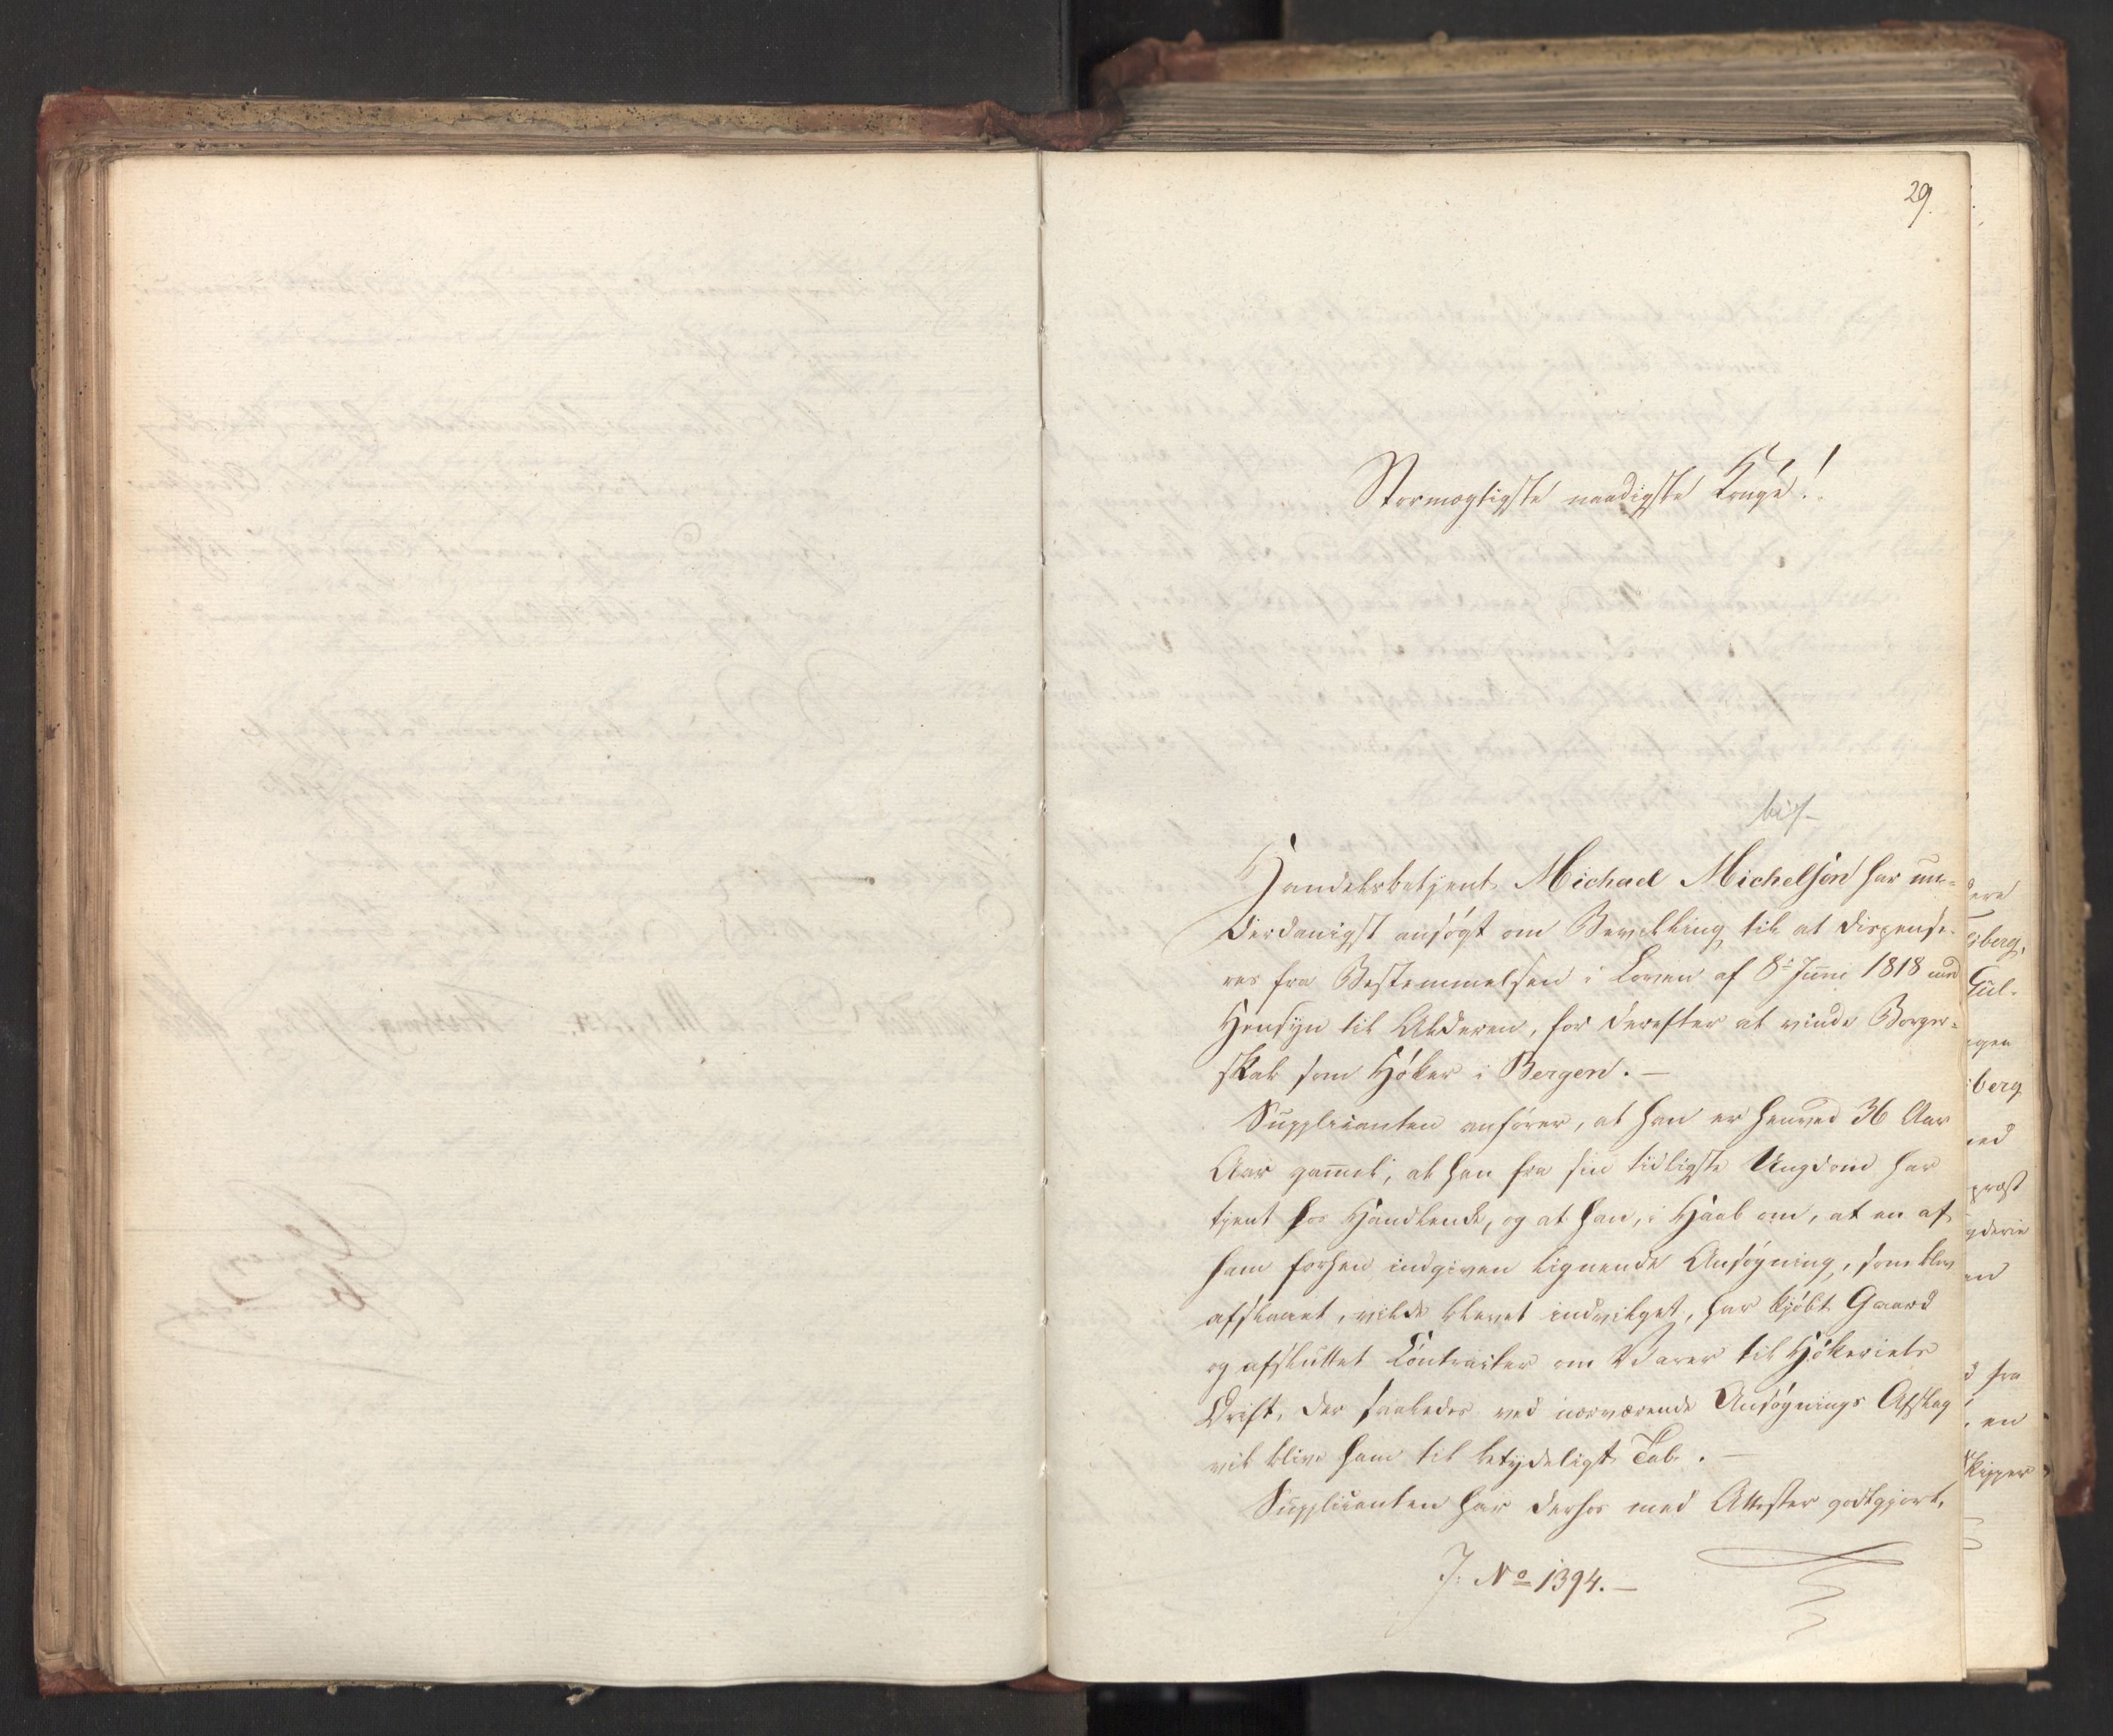 29.
Stormægtigste naadigste Konge!
Handelsbetjent Michael Michelsen har un-
derdanigst ansøgt om Bevilling til at dispense-
res fra Bestemmelsen i Loven af 8de Juni 1818 med
Hensyn til Alderen, for derefter at vinde Borger-
skab som Høker i Bergen. —
Supplicanten anfører, at han er henved 36 Aar
Aar gammel, at han fra sin tidligste Ungdom har
tjent hos Handlende, og at han, i Haab om, at en af
ham forhen indgiven lignende Ansøgning, som blev
afslaaet, vilde blevet indvilget, har kjøbt Gaard
og afsluttet Contracter om Varer til Høkeriets
Drift, der saaledes ved nærværende Ansøgnings Afslag
vil blive ham til betydeligt Tab. —
Supplicanten har derhos med Attester godtgjort,
J: No 1394. —
berg,
Gül-
gen
berg
præst
fra
en